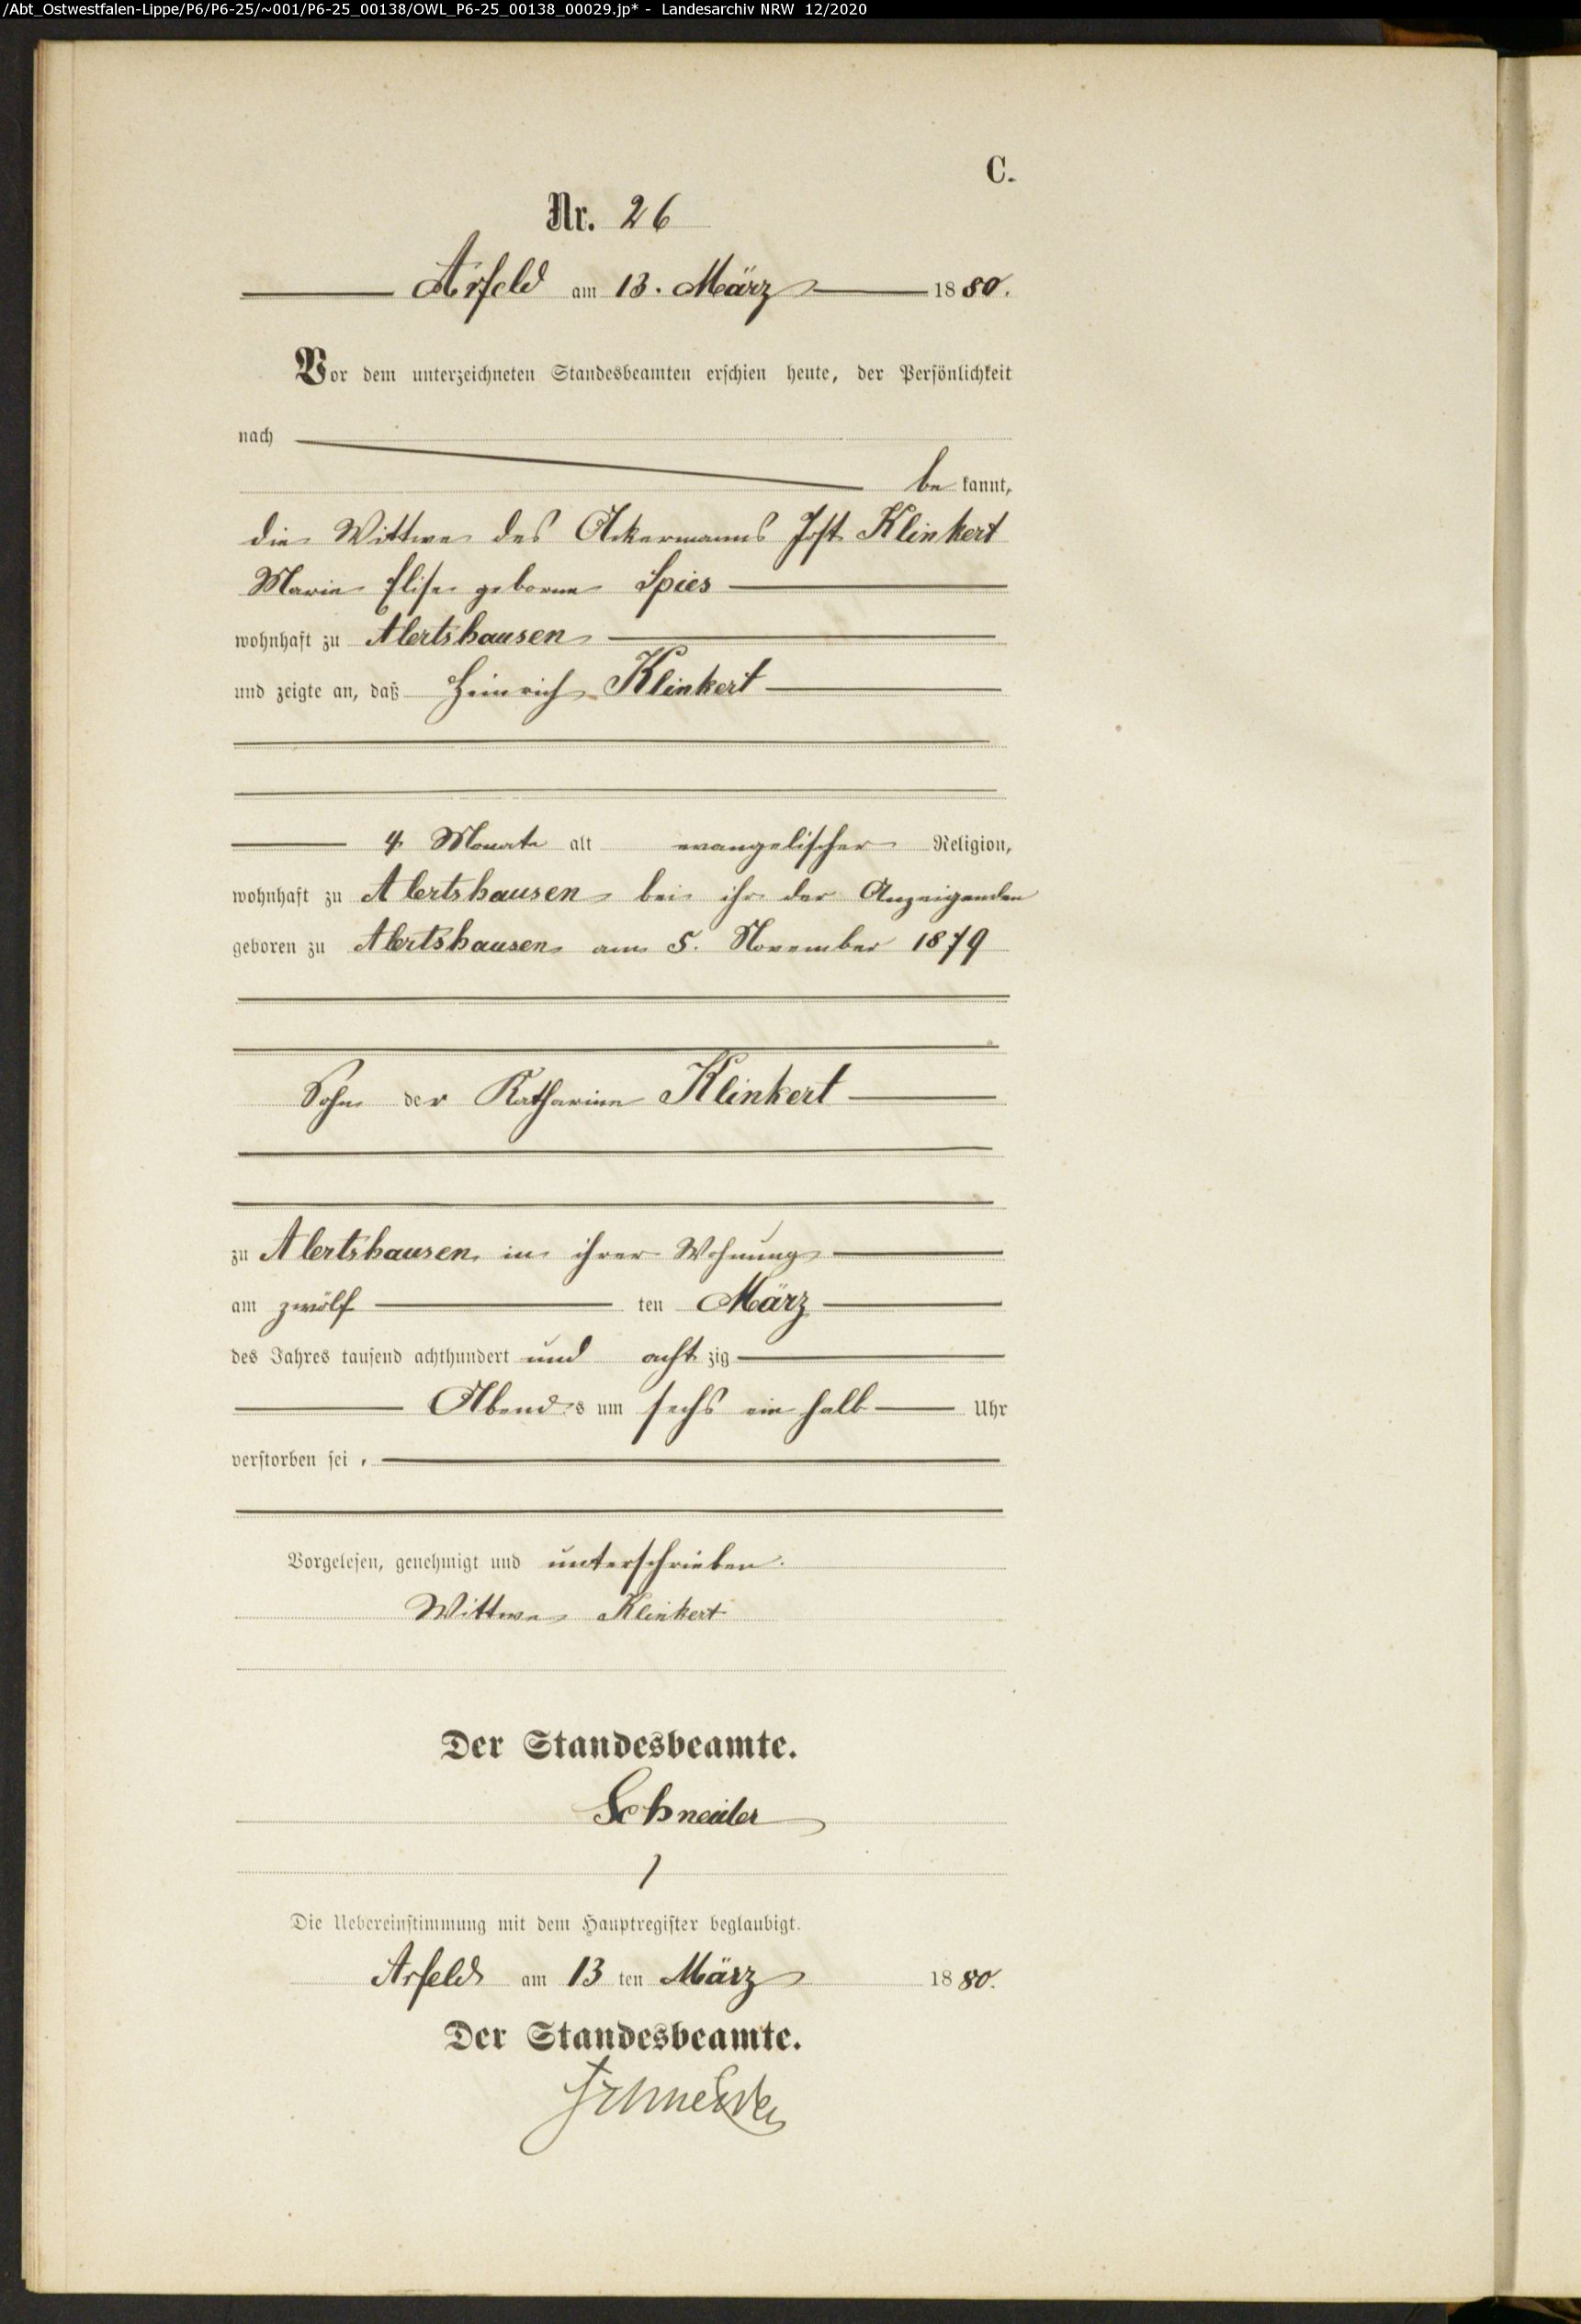 /Abt_Ostwestfalen-Lippe/P6/P6-25/~001/P6-25_00138/OWL_P6-25_00138_00029.jp* - Landesarchiv NRW 12/2020
C.
Nr. 26
Arfeld am 13. März 1880.
Vor dem unterzeichneten Standesbeamten erschien heute, der Persönlichkeit
nach
be kannt,
die Wittwe des Ackermanns Jost Klinkert
Marie Elise geborne Spies
wohnhaft zu Alertshausen
und zeigte an, daß Heinrich Klinkert
4 Monate alt evangelischer Religion,
wohnhaft zu Alertshausen bei ihr der Anzeigenden
geboren zu Alertshausen am 5. November 1879
Sohn der Katharine Klinkert
zu Alertshausen in ihrer Wohnung
am zwölf ten März
des Jahres tausend achthundert und achtzig
Abends um sechs ein halb Uhr
verstorben sei.
Vorgelesen, genehmigt und unterschrieben.
Wittwe Klinkert
Der Standesbeamte.
Schneider
Die Uebereinstimmung mit dem Hauptregister beglaubigt.
Arfeld am 13 ten März 1880.
Der Standesbeamte.
Schneider